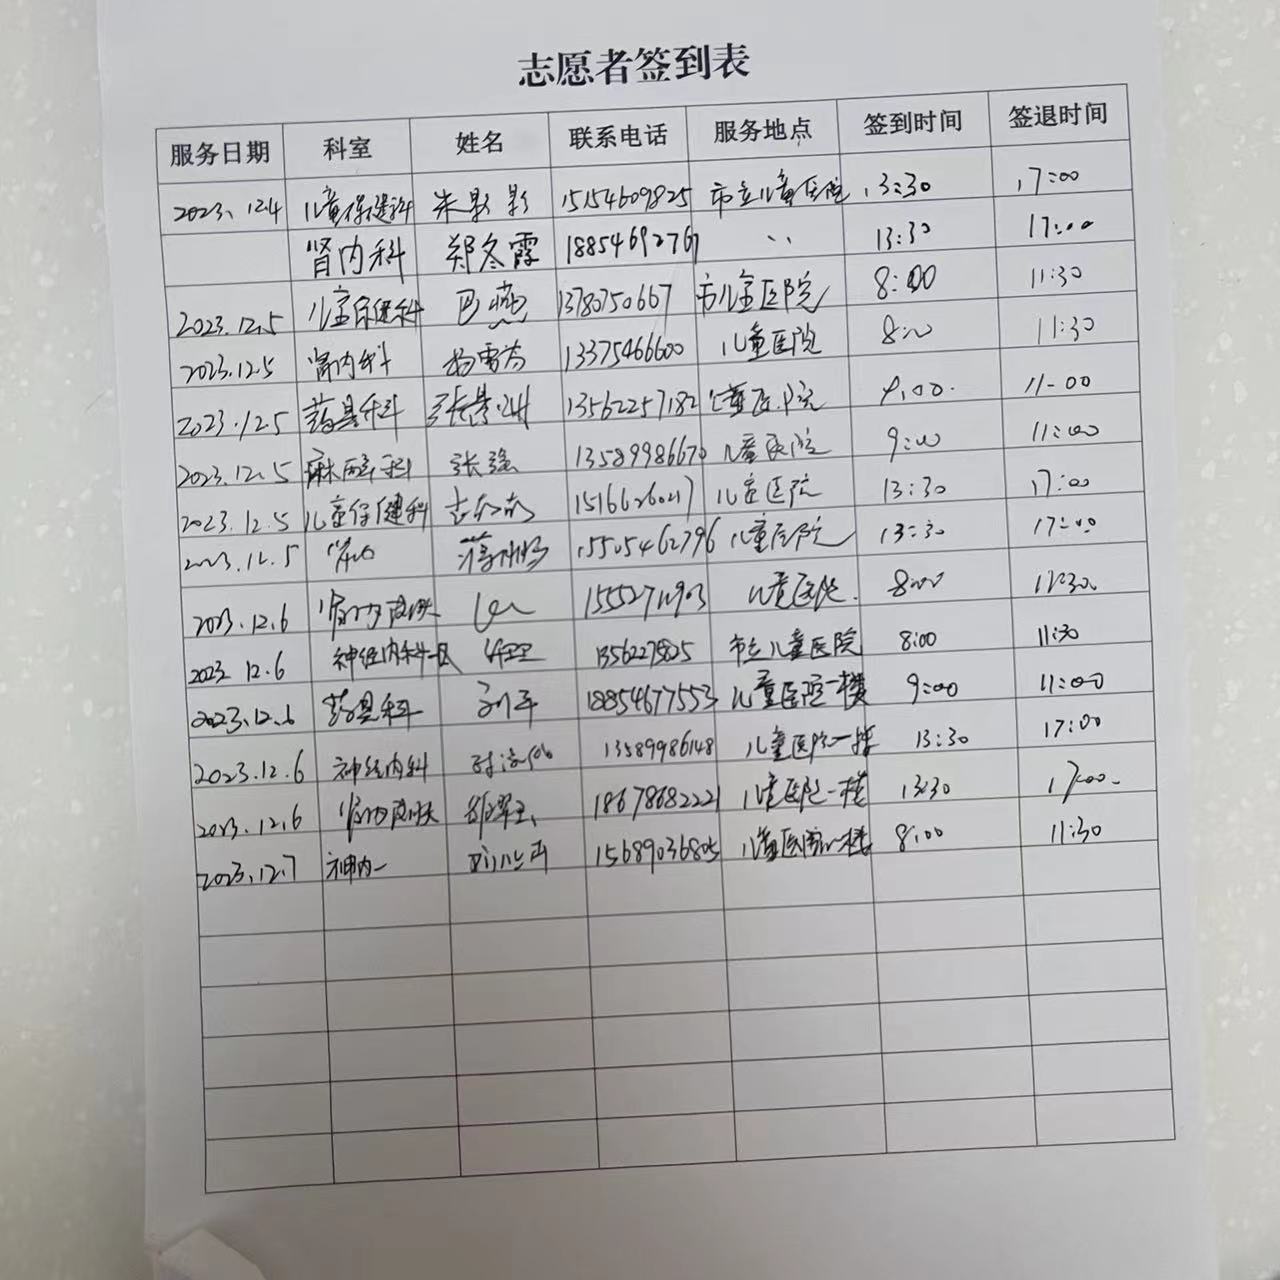 志愿者签到表
服务日期 科室 姓名 联系电话 服务地点 签到时间 签退时间
2023.12.4 儿童保健科 朱影影 15154609825 市立儿童医院 13:30 17:00
肾内科 郑冬霞 18854692767 〃 13:30 17:00
2023.12.5 儿童保健科 巴燕 13780750667 市儿童医院 8:00 11:30
2023.12.5 肾内科 13375466600 儿童医院 8:00 11:30
2023.12.5 药具科 13562257182 儿童医院 9:00 11-00
2023.12.5 麻醉科 张强 13589986670 儿童医院 9:00 11:00
2023.12.5 儿童保健科 1516626027 儿童医院 13:30 17:00
2023.12.5 15505462796 儿童医院 13:30 17:00
2023.12.6 儿童医院 8:00 11:30
2023 12.6 神经内科一区 市立儿童医院 8:00 11:30
2023.12.6 药具科 18854677553 儿童医院一楼 9:00 11:00
2023.12.6 神经内科 13589986148 儿童医院一楼 13:30 17:00
2023.12.6 18678682221 儿童医院一楼 13:30 17:00
2023.12.7 神内一 15689036805 儿童医院一楼 8:00 11:30